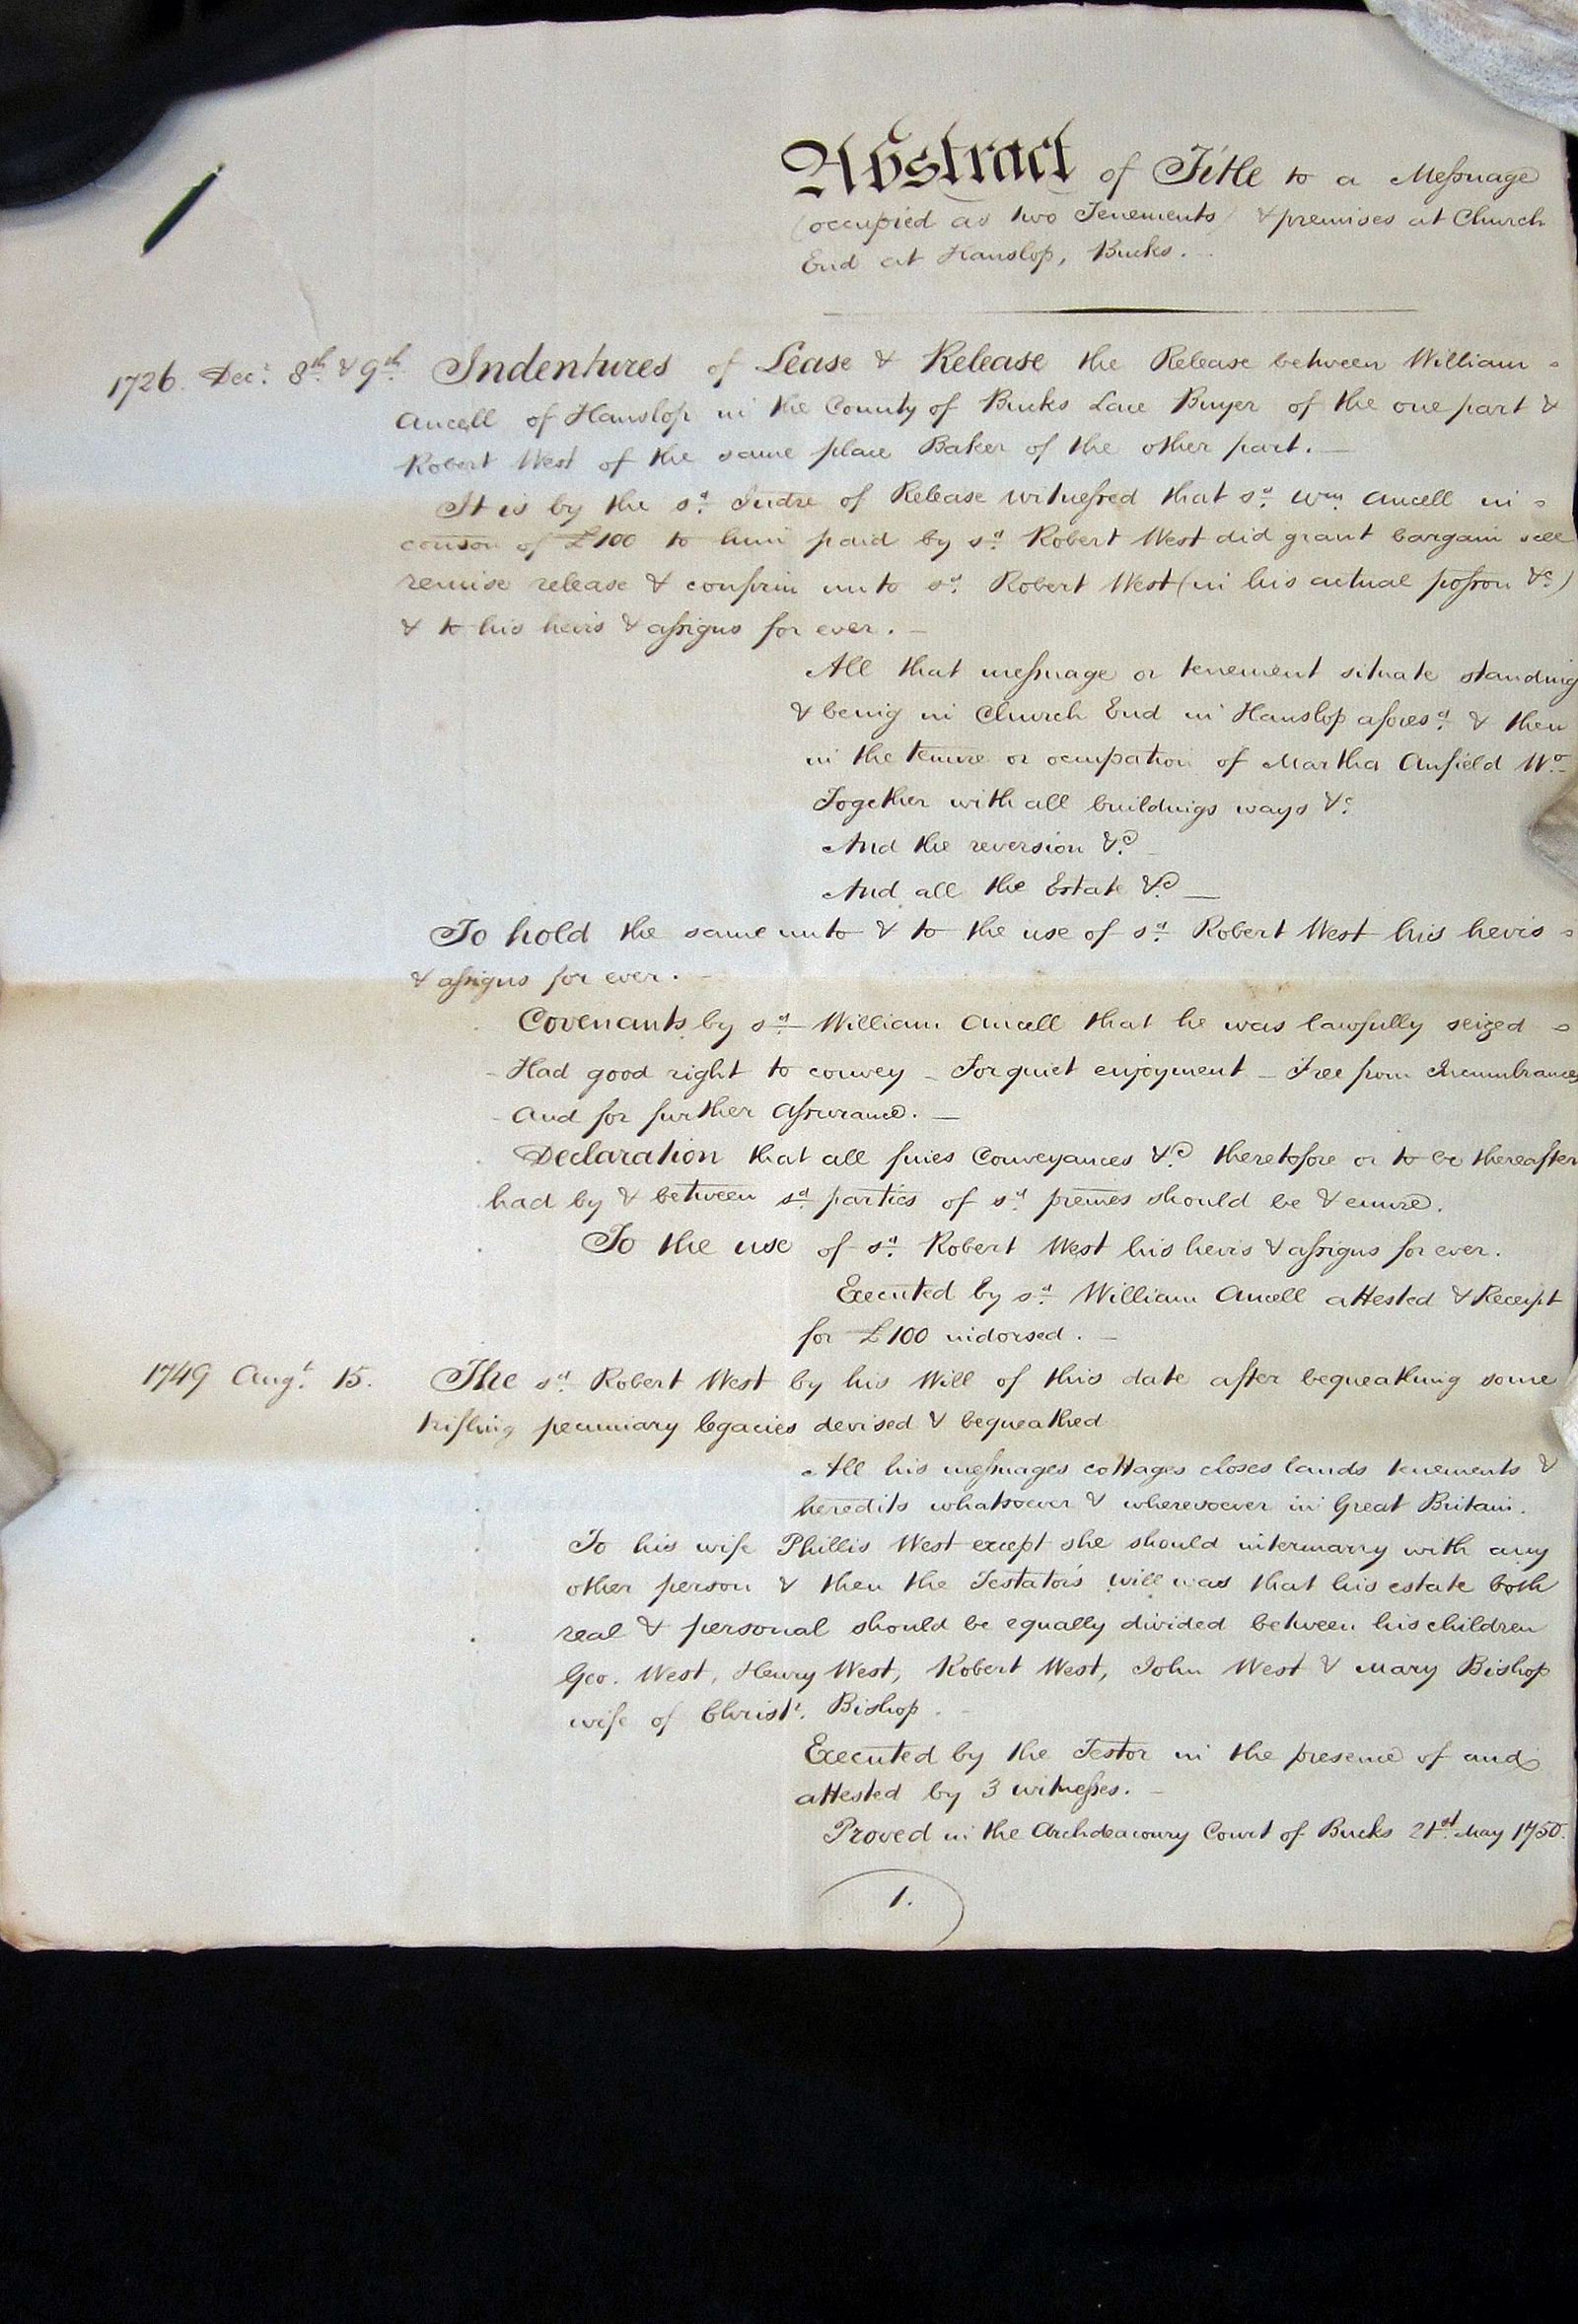 Abstract of Title to a Messuage
(occupied as two Tenements) & premises at Church
End at Hanslop, Bucks.
1726. Decr. 8th & 9th. Indentures of Lease & Release the Release between William
Ancell of Hanslop in the County of Bucks Lace Buyer of the one part &
Robert West of the same place Baker of the other part.
It is by the sd. Indre of Release witnessed that sd. Wm. Ancell in
conson of £100 to him paid by sd. Robert West did grant bargain sell
remise release & confirm unto sd. Robert West (in his actual posson &c.)
& to his heirs & assigns for ever.
All that messuage or tenement situate standing
& being in Church End in Hanslop aforesd. & then
in the tenure or occupation of Martha Anfield Wo.
Together with all buildings ways &c.
And the reversion &c.
And all the Estate &c.
To hold the same unto & to the use of sd. Robert West his heirs
& assigns for ever.
Covenants by sd. William Ancell that he was lawfully seized
- Had good right to convey - For quiet enjoyment - Free from Incumbrances
- And for further Assurance.
Declaration that all fines Conveyances &c. theretofore or to be thereafter
had by & between sd. parties of sd. premes should be & enure.
To the use of sd. Robert West his heirs & assigns for ever.
Executed by sd. William Ancell attested & Receipt
for £100 indorsed.
1749 Augt. 15. The sd. Robert West by his Will of this date after bequeathing some
trifling pecuniary legacies devised & bequeathed
All his messuages cottages closes lands tenements &
heredits whatsoever & wheresoever in Great Britain.
To his wife Phillis West except she should intermarry with any
other person & then the Testator's will was that his estate both
real & personal should be equally divided between his children
Geo. West, Henry West, Robert West, John West & Mary Bishop
wife of Christr. Bishop.
Executed by the Testor in the presence of and
attested by 3 witnesses.
Proved in the Archdeaconry Court of Bucks 21st. May 1750.
1.